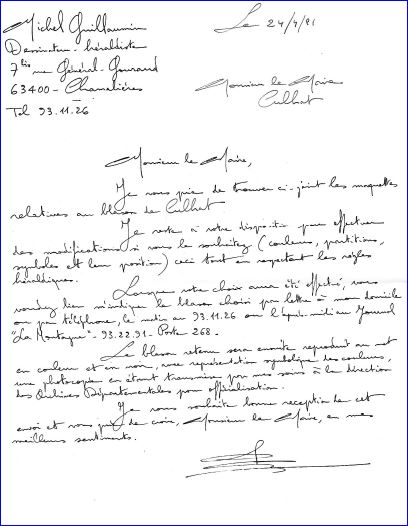 Michel Guillaumin
Dessinateur-héraldiste
7 bis rue Général-Gouraud
63400 - Chamalières
Tel 93.11.26
Le 24/4/81
Monsieur le Maire
Culhat
Monsieur le Maire,
Je vous prie de trouver ci-joint les maquettes
relatives au blason de Culhat
Je reste à votre disposition pour effectuer
des modifications si vous le souhaitez (couleurs, partitions,
symboles et leur position) ceci tout en respectant les règles
héraldiques.
Lorsque votre choix aura été effectué, vous
voudrez bien m'indiquer le blason choisi par lettre à mon domicile
ou par téléphone, le matin au 93.11.26 ou l'après-midi au Journal
"La Montagne" - 93.22.91 - Poste 268 -
Le blason retenu sera ensuite reproduit au net
en couleur et en noir, avec représentation symbolique des couleurs,
une photocopie en étant transmise par mes soins à la direction
des Archives Départementales pour officialisation.
Je vous souhaite bonne réception de cet
envoi et vous prie de croire, Monsieur le Maire, en mes
meilleurs sentiments.